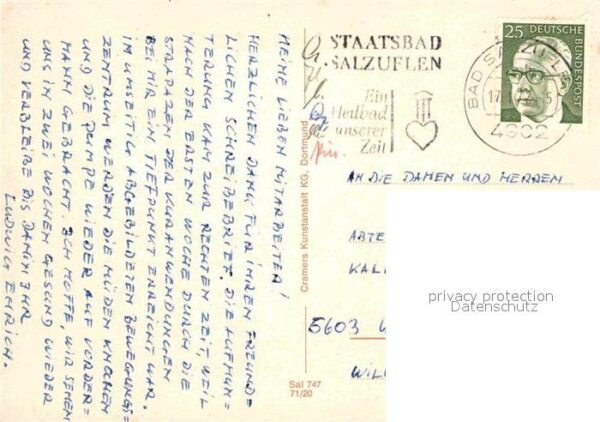 MEINE LIEBEN MITARBEITER!
HERZLICHEN DANK FÜR IHREN FREUND=
LICHEN SCHREIBEBRIEF. DIE AUFMUN=
TERUNG KAM ZUR RECHTEN ZEIT, WEIL
NACH DER ERSTEN WOCHE DURCH DIE
STRAPAZEN DER KURANWENDUNGEN
BEI MIR EIN TIEFPUNKT ERREICHT WAR.
IM UMSEITIG ABGEBILDETEN BEWEGUNGS=
ZENTRUM WERDEN DIE MÜDEN KNOCHEN
UND DIE PUMPE WIEDER AUF VORDER=
MANN GEBRACHT. ICH HOFFE, WIR SEHEN
UNS IN ZWEI WOCHEN GESUND WIEDER
UND VERBLEIBE BIS DAHIN IHR
LUDWIG EHRICH.
Cramers Kunstanstalt KG, Dortmund
Sal 747
71/20
STAATSBAD
SALZUFLEN
Ein
Heilbad
unserer
Zeit
BAD SALZUFL
17.
4902
25
DEUTSCHE
BUNDESPOST
AN DIE DAMEN UND HERREN
ABTE
KAL
5603
WIL
privacy protection
Datenschutz